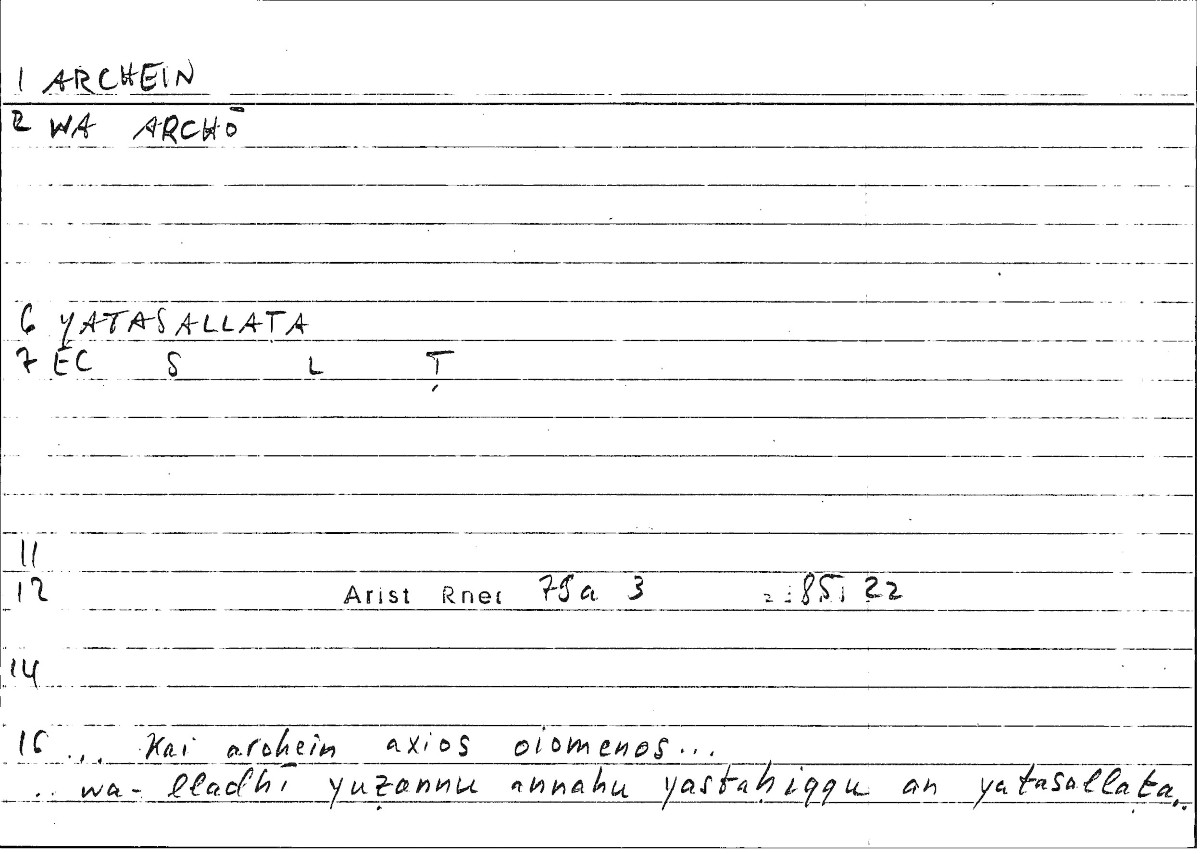 1 ARCHEIN
2 WA ARCHŌ
6 YATASALLATA
7 EC S L Ṭ
11
12 Arist Rhet 79a 3 85, 22
14
16 ... kai archein axios oiomenos...
.. wa-lladhī yuẓannu annahu yastaḥiqqu an yatasallaṭa..